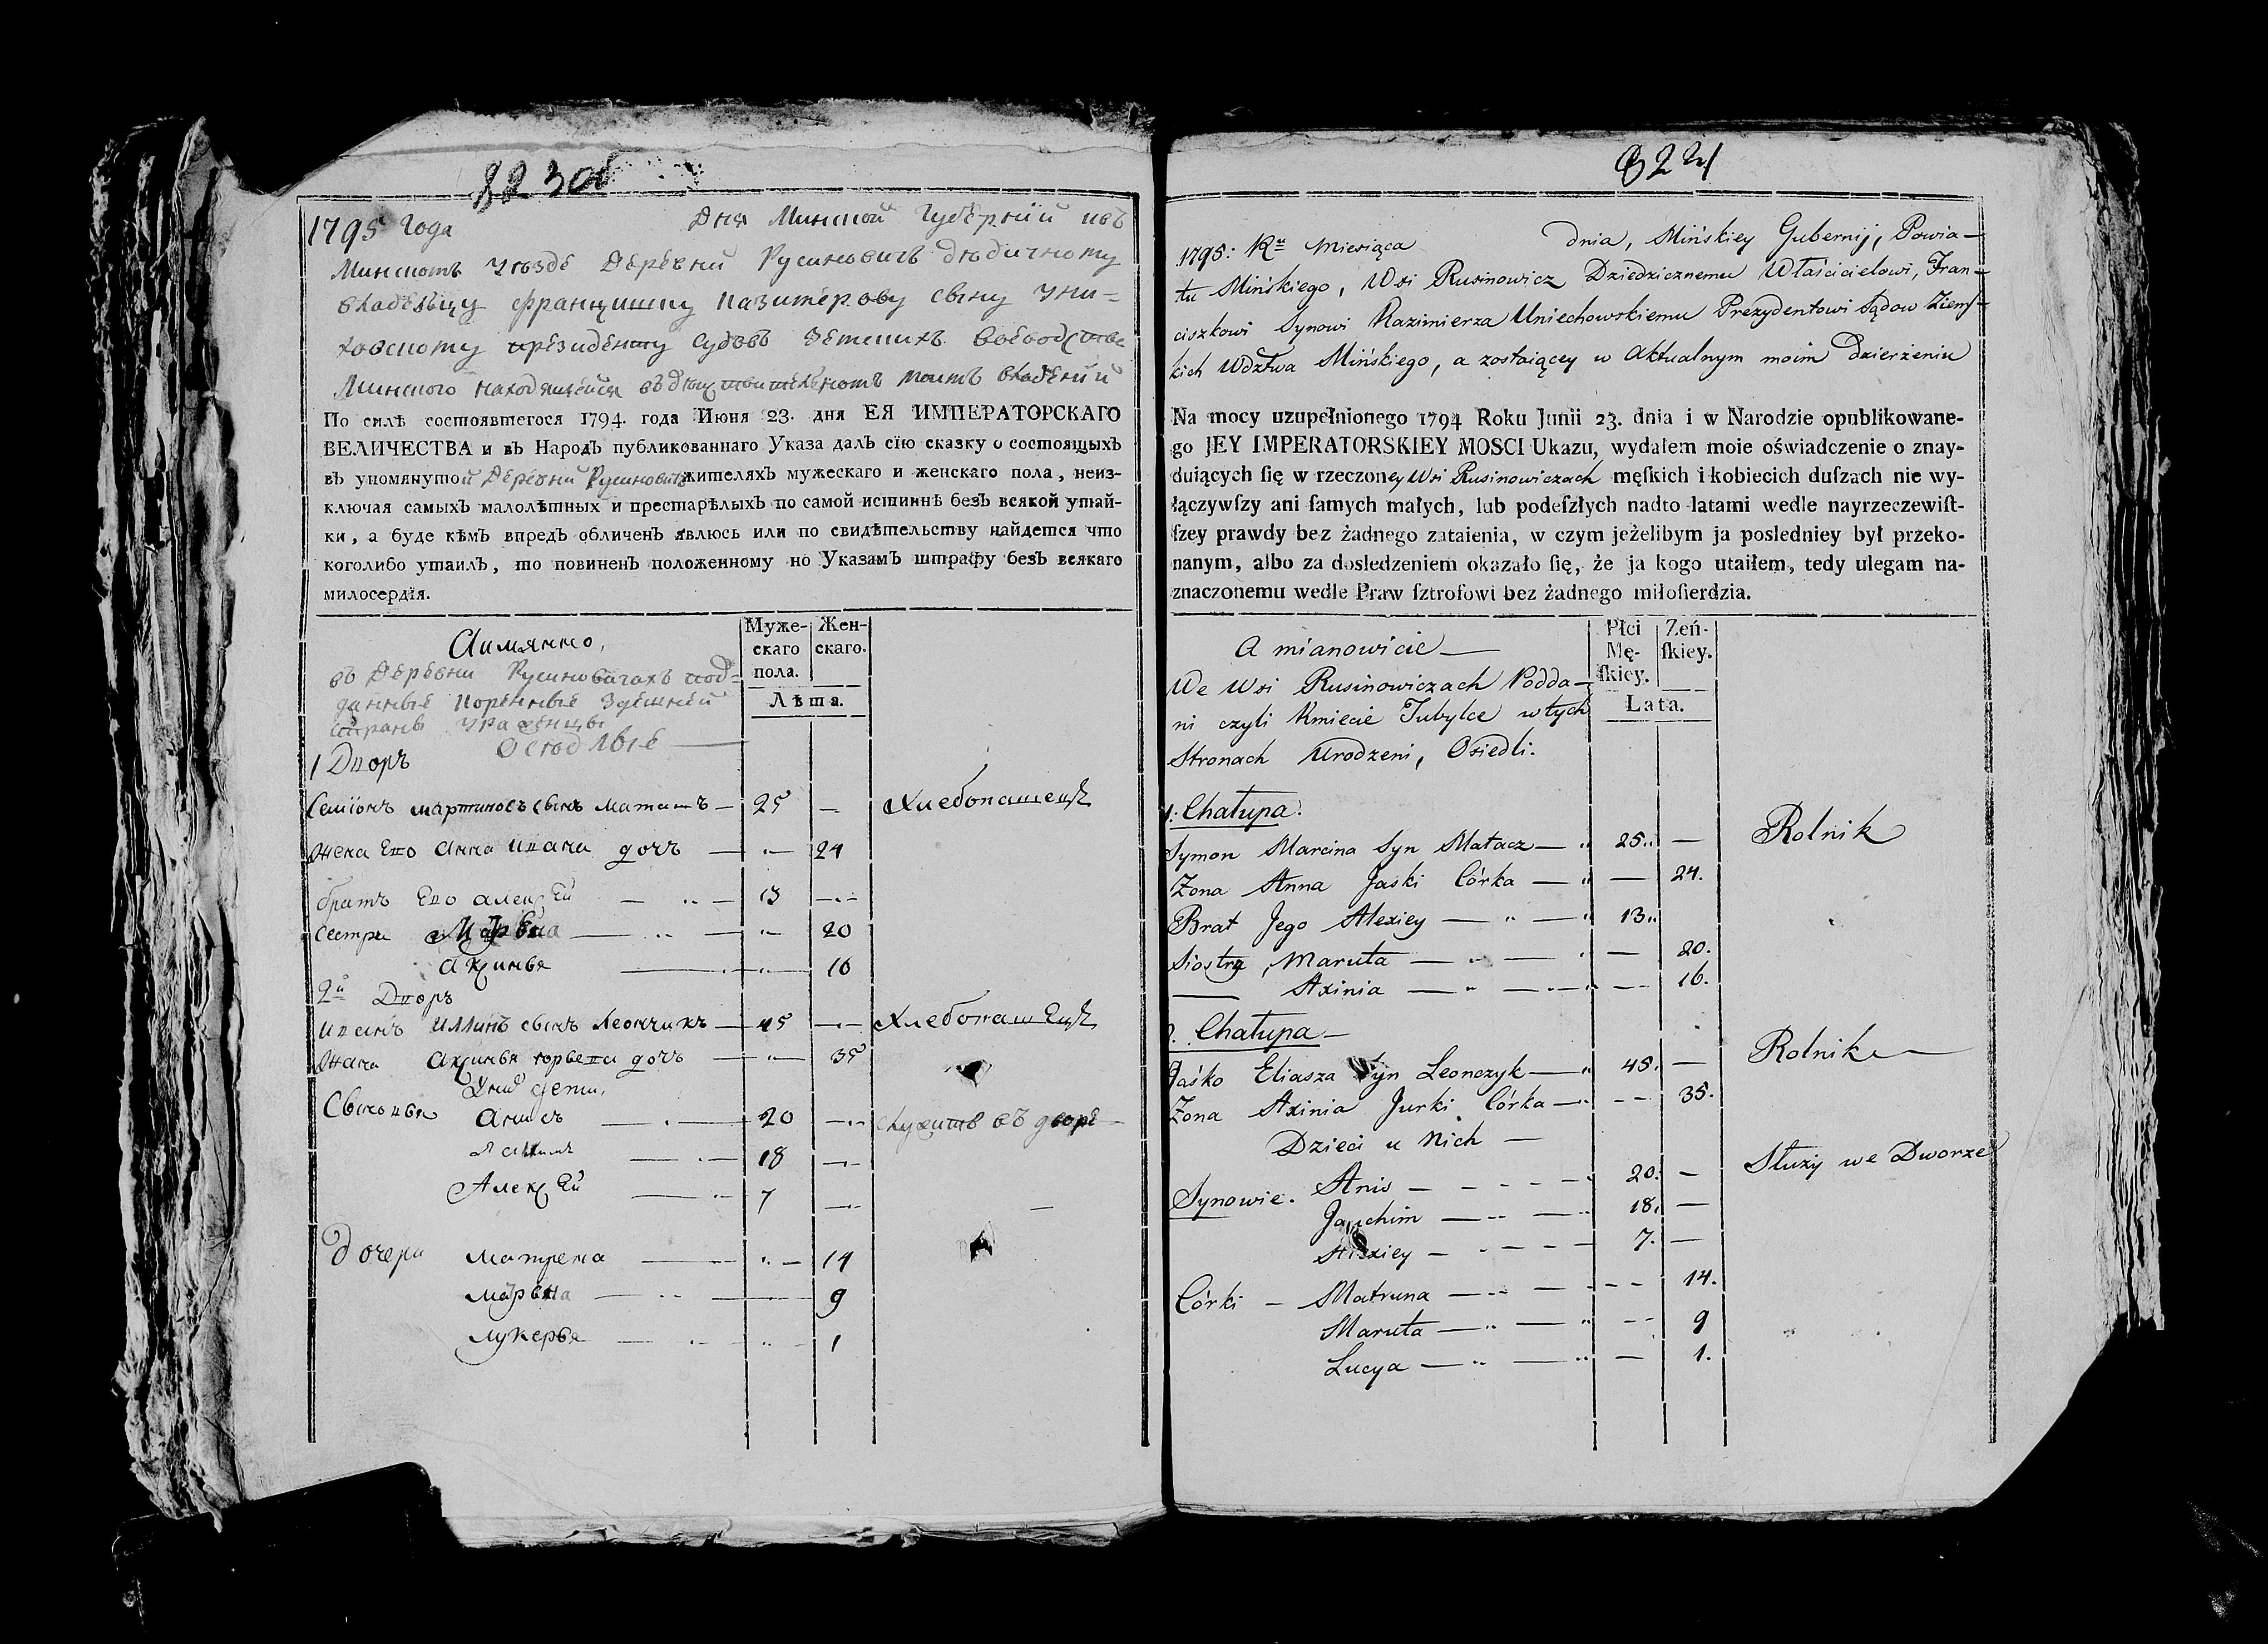 823 об
1795 Года Дня Минской Губернїи и въ
Минскомъ уѣздѣ Деревни Русиновичъ дѣдичному
владельцу Францишку Казимерову сыну Уни-
ховскому президенту Судовъ Земскихъ Воеводства
Минского находящейся въ действительномъ моимъ владенїи
По силѣ состоявшегося 1794. года Июня 23. дня ЕЯ ИМПЕРАТОРСКАГО
ВЕЛИЧЕСТВА и въ НародЪ публикованнаго Указа далЪ сїю сказку о состоящыхЪ
въ упомянутой Деревни Русиновичъ жителяхЪ мужескаго и женскаго пола, неиз-
ключая самыхЪ малолѣтныхЪ и престарѣлыхЪ по самой истиннѣ безЪ всякой утай-
ки, а буде кѣмЪ впредЪ обличенЪ явлюсь или по свидѣтельству найдется что
коголибо утаилЪ, то повиненЪ положенному по УказамЪ штрафу безЪ всякаго
милосердїя.
Аимянно,
Муже-
скаго
пола.
Жен-
скаго.
Лѣта.
въ Деревни Русиновичахъ под-
данные коренные здешней
страны уроженцы
Оседлые —
1 Дворъ
Семїонъ Мартиновъ сынъ Маташъ — 25 — Хлебопашецъ
Жена Его Анна Ивана дочъ — „ — 24
братъ Его Алексей — „ — 13 —
Сестры Марына — „ — „ — 20
Аксинья — „ — 16
2й Дворъ
Иванъ Иллинъ сынъ Леончикъ — 45 — Хлебопашецъ
Жана Аксинья Юрьева дочъ — „ — 35
У них дети,
Сыновья Анисъ — 20 — Служитъ въ дворе
Якимъ — 18 —
Алексей — 7 —
Дочери Матрена — „ — 14
Марына — „ — 9
Лукерья — „ — 1
824
1795: Ku Miesiąca dnia, Mińskiey Gubernij, Powia-
tu Mińskiego, Wsi Rusinowicz Dziedzicznemu Właścicielowi, Fran-
ciszkowi Synowi Kazimierza Uniechowskiemu Prezydentowi Sądow Ziems-
kich Wdztwa Mińskiego, a zostaiącey w Aktualnym moim Dzierżeniu
Na mocy uzupełnionego 1794 Roku Junii 23. dnia i w Narodzie opublikowane-
go JEY IMPERATORSKIEY MOSCI Ukazu, wydałem moie oświadczenie o znay-
duiących ſię w rzeczoney Wsi Rusinowiczach męſkich i kobiecich duſzach nie wy-
łączywſzy ani ſamych małych, lub podeſzłych nadto latami wedle nayrzeczewiſt-
ſzey prawdy bez żadnego zataienia, w czym jeżelibym ja posledniey był przeko-
nanym, albo za dosledzeniem okazało ſię, że ja kogo utaiłem, tedy ulegam na-
znaczonemu wedle Praw ſztroſowi bez żadnego miłoſierdzia.
A mianowicie —
Płci
Mę-
ſkiey.
Zeń-
ſkiey.
Lata.
We Wsi Rusinowiczach Podda-
ni czyli Kmiecie Tubylce w tych
Stronach Urodzeni, Osiedli.
1: Chałupa.
Symon Marcina Syn Matacz — „ 25.. — Rolnik
Zona Anna Jaski Córka — „ — 24.
Brat Jego Alexiey — „ — „ 13..
Siostry, Maruta — „ — „ — 20.
— Axinia — „ — „ — 16.
2. Chałupa —
Jaśko Eliasza Syn Leonczyk — „ 45. — Rolnik —
Zona Axinia Jurki Córka — „ — 35.
Dzieci u Nich —
Synowie. Anis — - - - 20. — Służy we Dworze
Joachim — „ — „ 18. —
Alexiey — - - - 7. —
Córki — Matruna — „ — - - 14.
Maruta — „ — „ - - 9
Lucya — „ — „ — 1.